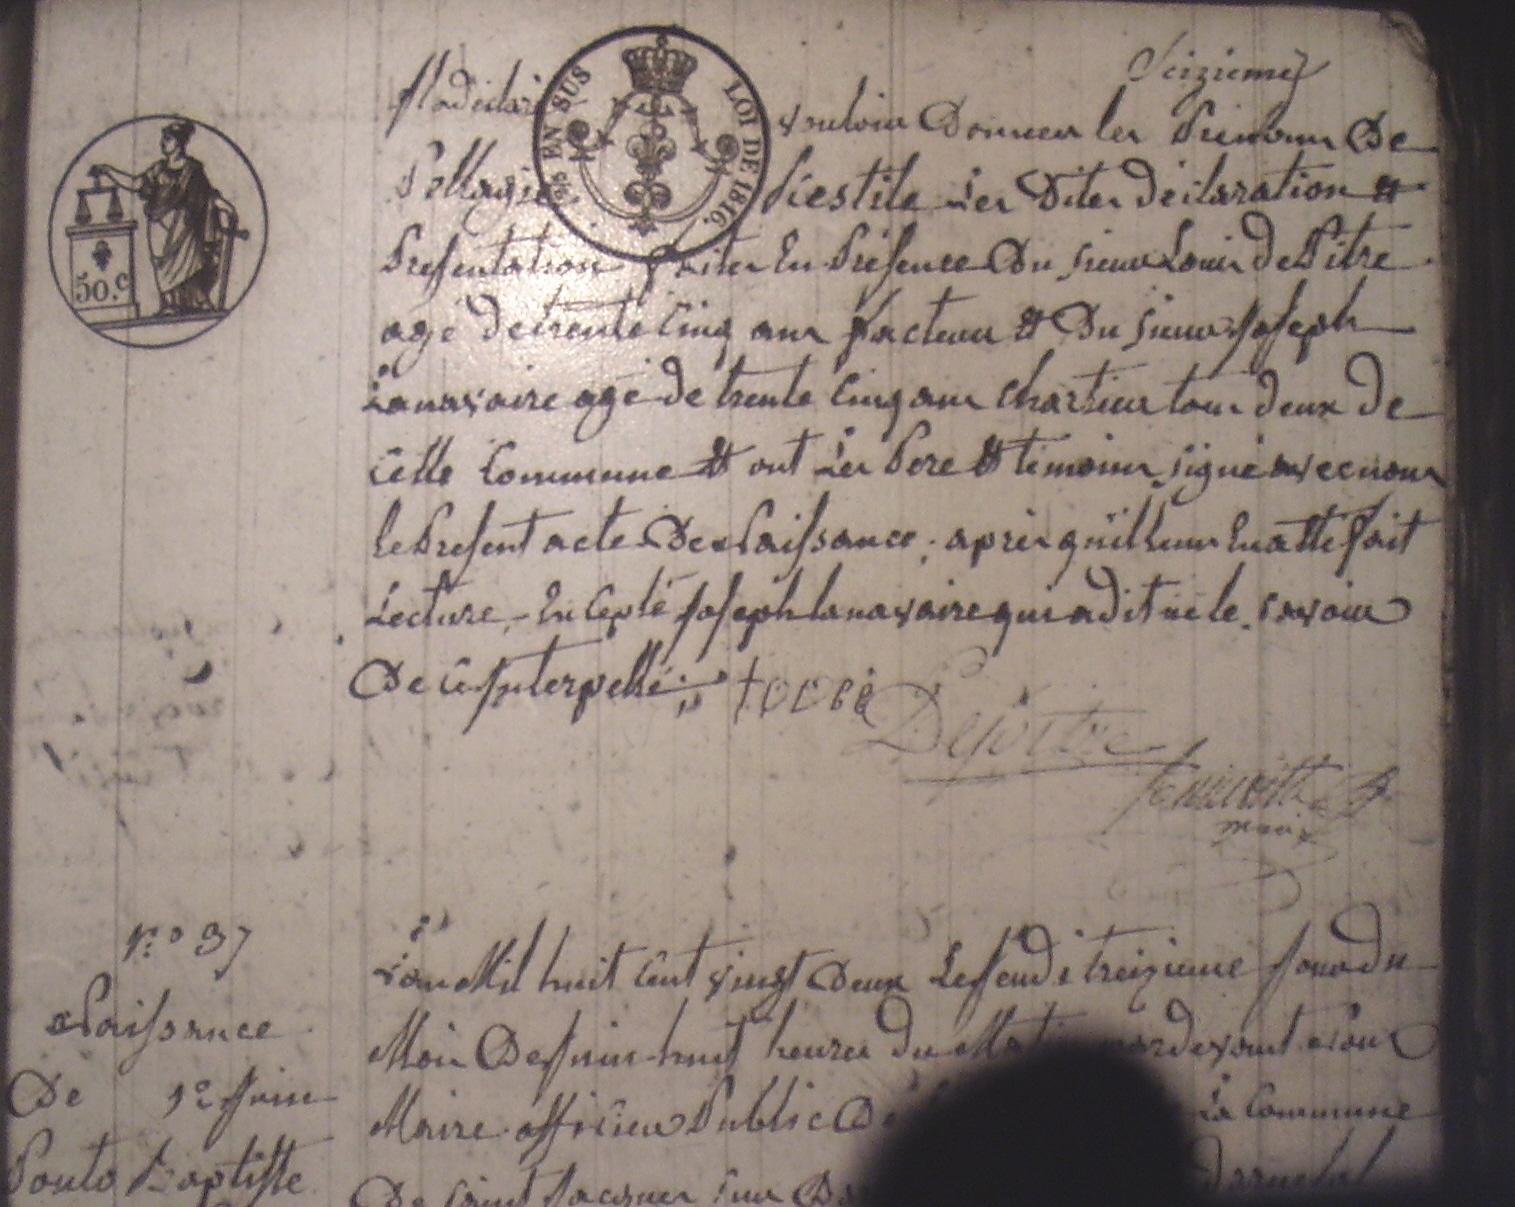 Seizieme
il a déclaré vouloir Donner les Prénoms De
Pellagie Piestile Les Dites déclaration et
Presentation faites En Présence Du sieur Louis dePitre
agé de trente Cinq ans facteur et Du sieur Joseph
Lanavaire agé de trente Cinq ans chartier tous deux de
Cette Commune et ont Les Pere et temoins signé avec nous
le Present acte De Naissance, après qu'il leur En a été fait
Lecture, - Excepté Joseph lanavaire qui a dit ne le savoir
De ce Interpellé
Depitre
maire
EN SUS
LOI DE 1816.
50.c
n.o 37
Naissance
De 12 Juin
Baptiste
L'an Mil huit Cent vingt Deux Le Jeudi treizieme Jour du
Mois De Juin huit heures du Matin pardevant Nous
Maire officier Public De La Commune
De Saint Jacques sur Darnetal